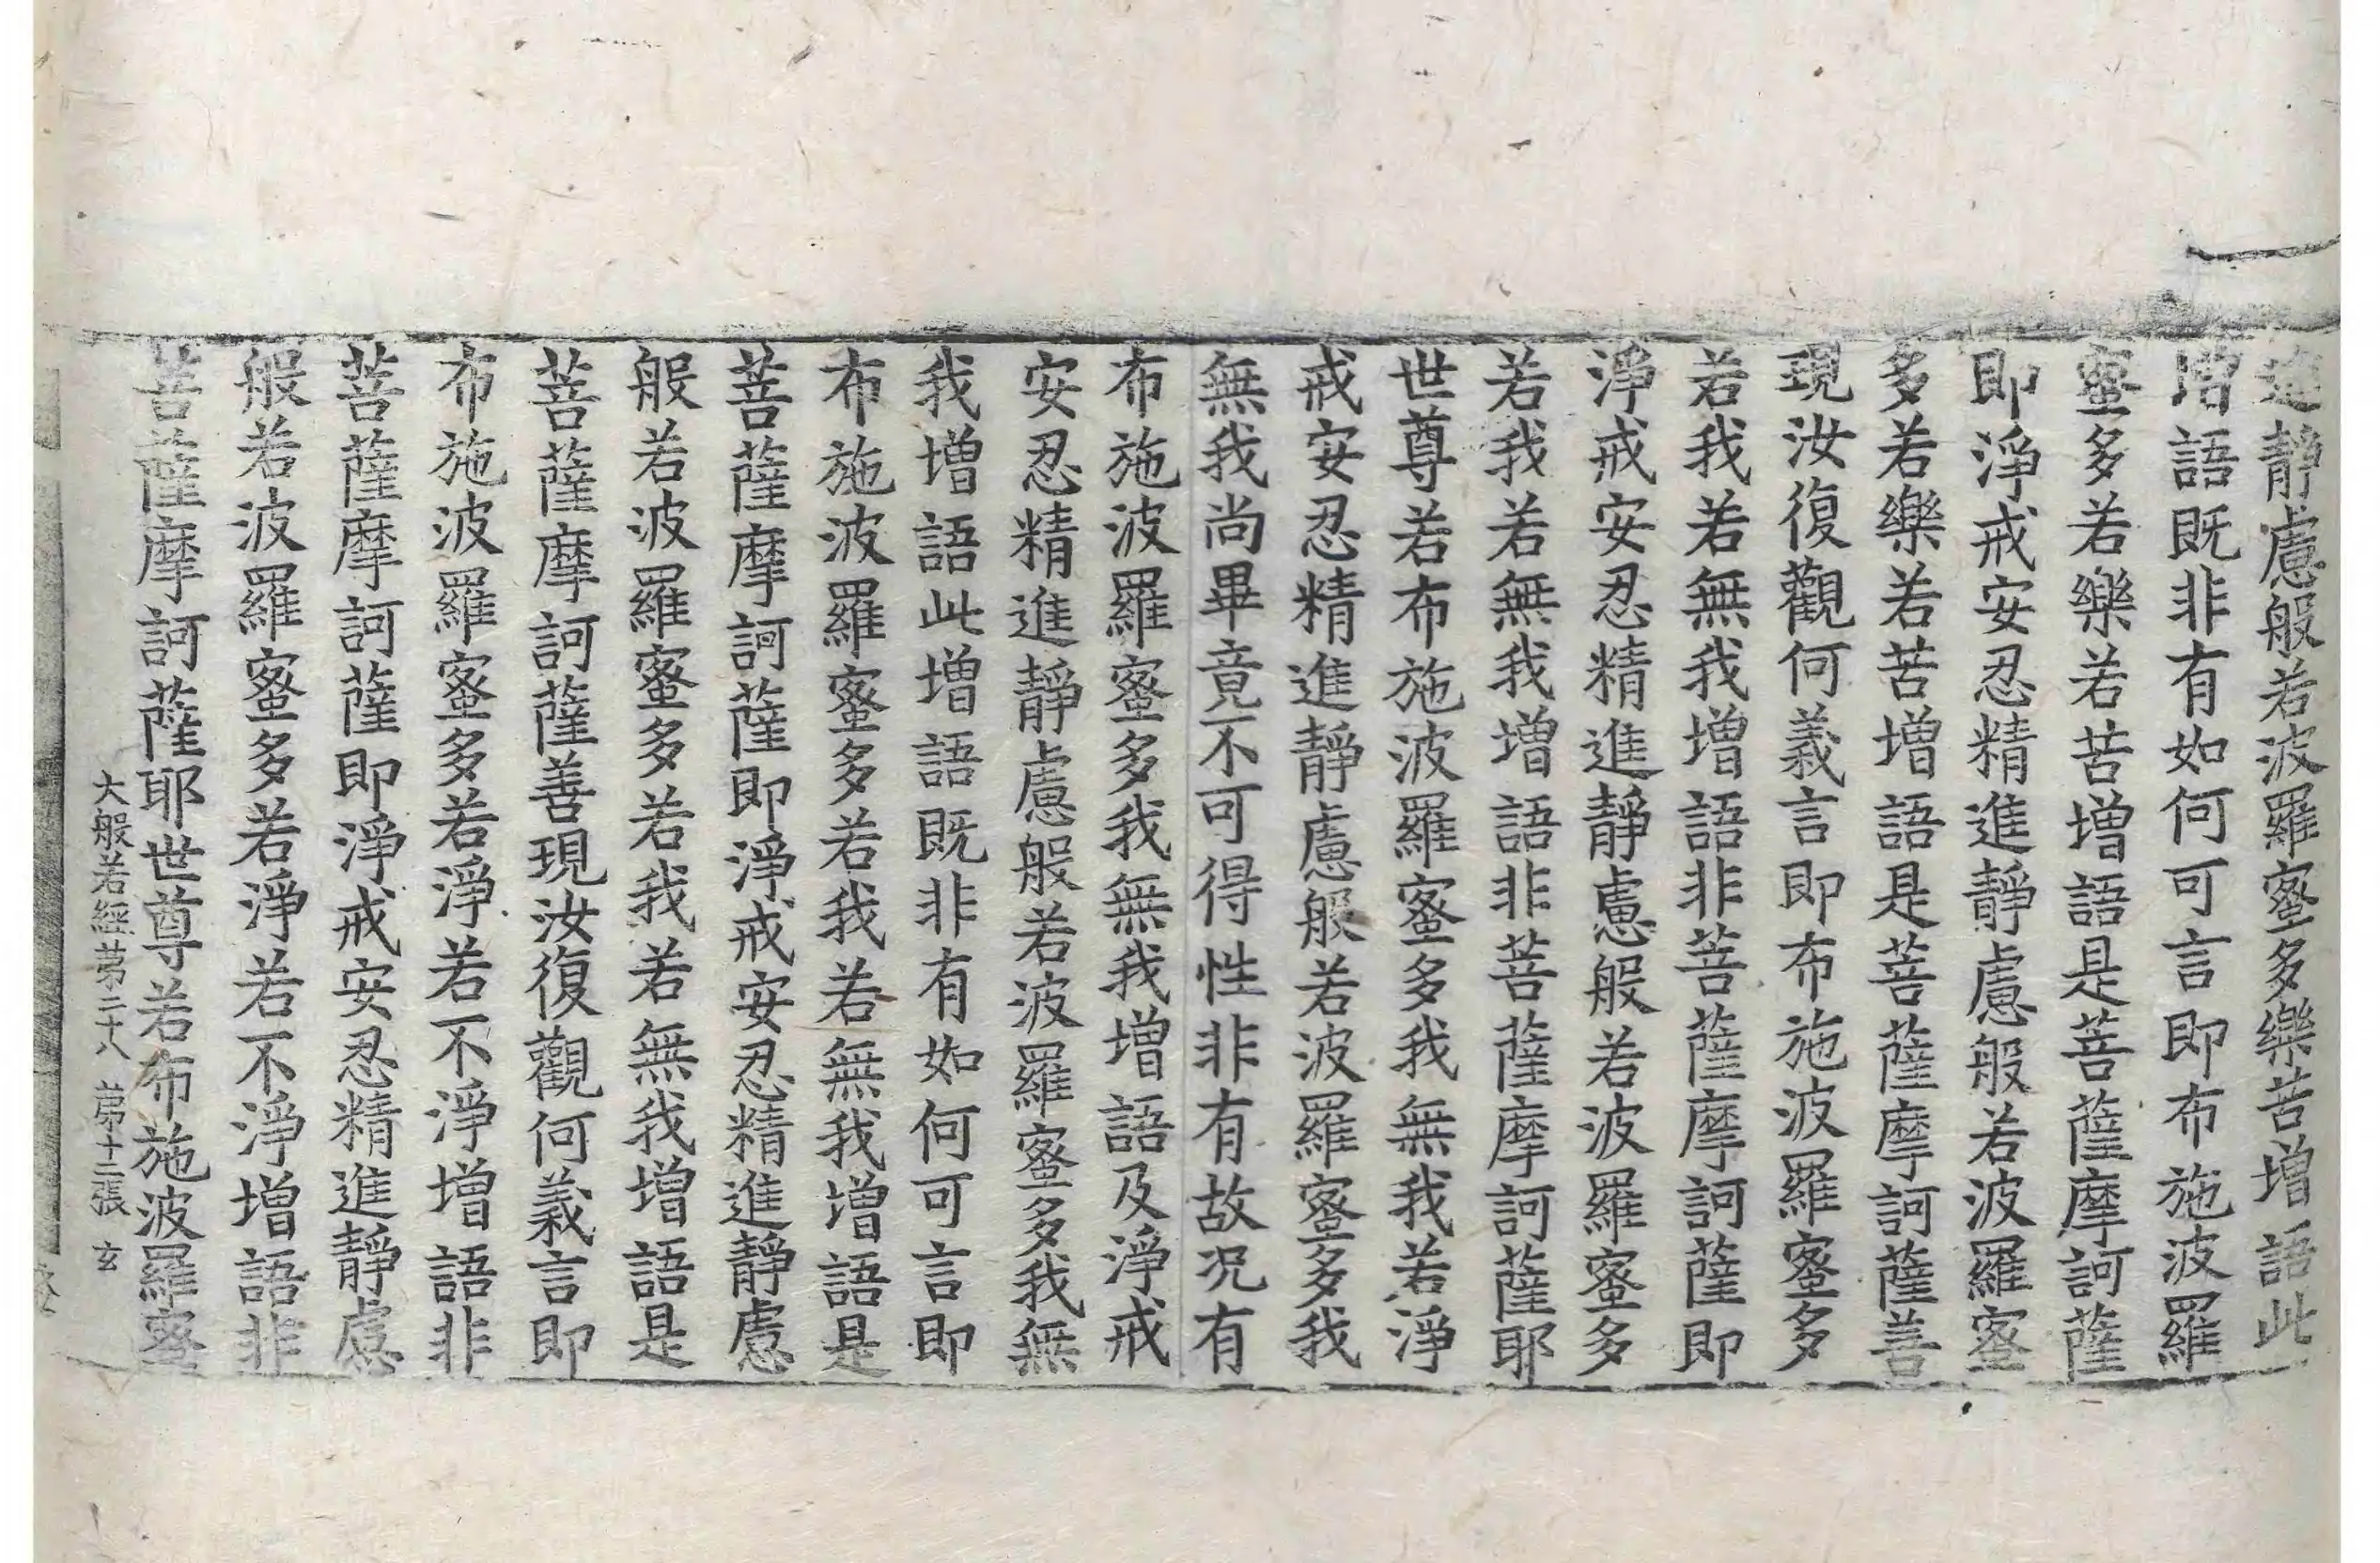 進靜慮般若波羅蜜多樂苦增語此
增語既非有如何可言即布施波羅
蜜多若樂若苦增語是菩薩摩訶薩
即淨戒安忍精進靜慮般若波羅蜜
多若樂若苦增語是菩薩摩訶薩善
現汝復觀何義言即布施波羅蜜多
若我若無我增語非菩薩摩訶薩即
淨戒安忍精進靜慮般若波羅蜜多
若我若無我增語非菩薩摩訶薩耶
世尊若布施波羅蜜多我無我若淨
戒安忍精進靜慮般若波羅蜜多我
無我尚畢竟不可得性非有故况有
布施波羅蜜多我無我增語及淨戒
安忍精進靜慮般若波羅蜜多我無
我增語此增語既非有如何可言即
布施波羅蜜多若我若無我增語是
菩薩摩訶薩即淨戒安忍精進靜慮
般若波羅蜜多若我若無我增語是
菩薩摩訶薩善現汝復觀何義言即
布施波羅蜜多若淨若不淨增語非
菩薩摩訶薩即淨戒安忍精進靜慮
般若波羅蜜多若淨若不淨增語非
菩薩摩訶薩耶世尊若布施波羅蜜
大般若經第二十八 第十二張 玄